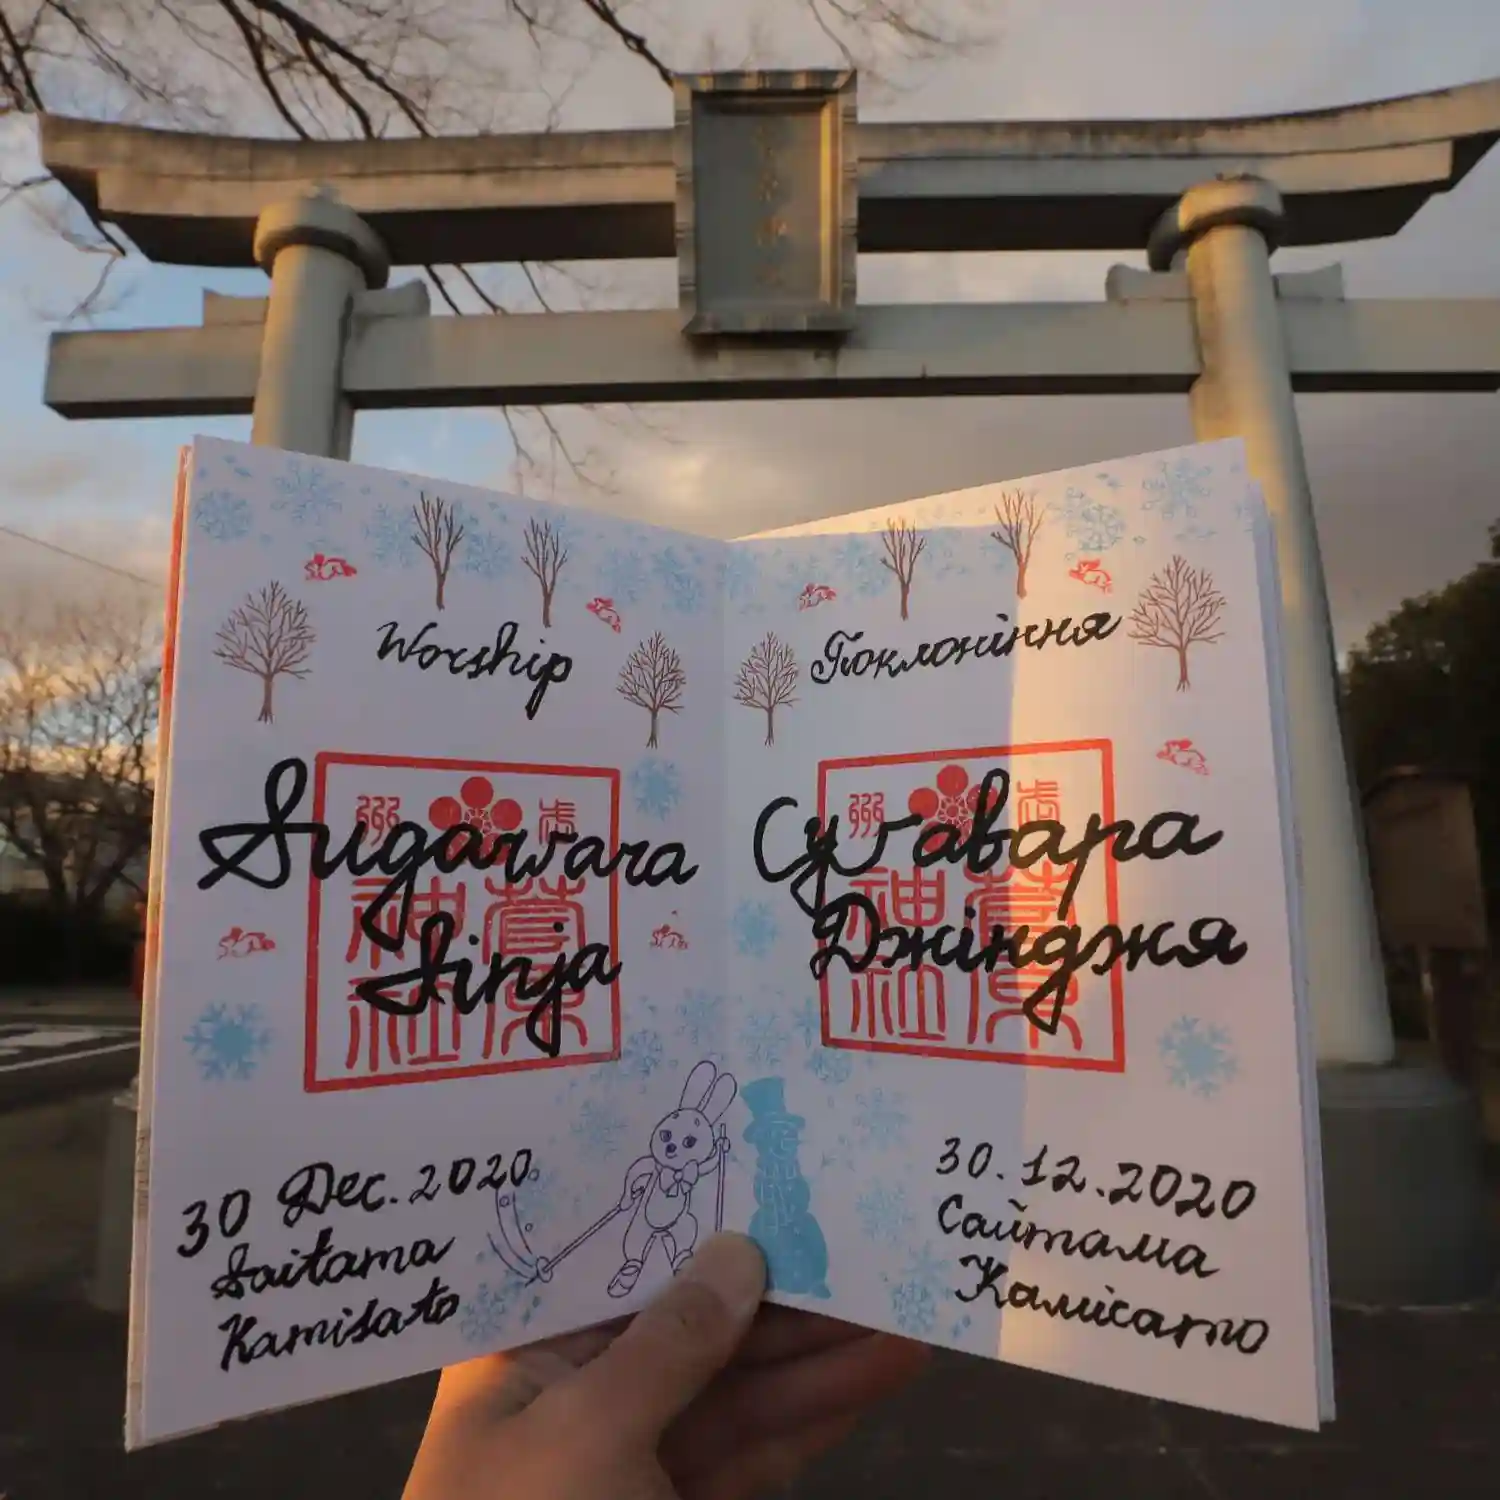 Worship
Sugawara
Jinja
30 Dec. 2020
Saitama
Kamisato
Поклоніння
Сугавара
Джінджя
30.12.2020
Сайтама
Камісато